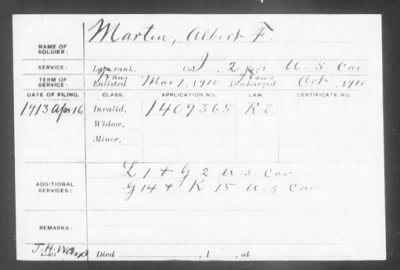 NAME OF SOLDIER: Martin, Albert F.
SERVICE: Late rank, Co. I, 2 Reg't U.S. Cav
TERM OF SERVICE: Enlisted Mar 1, 1910 Discharged Oct., 1910
DATE OF FILING. CLASS. APPLICATION NO. LAW. CERTIFICATE NO.
1913 Apr 16 Invalid, 1409365
Widow,
Minor,
ADDITIONAL SERVICES: L 1 + G 2 U.S. Cav
G 14 + K 15 U.S. Cav
REMARKS:
J.H.
Died , 1 , at